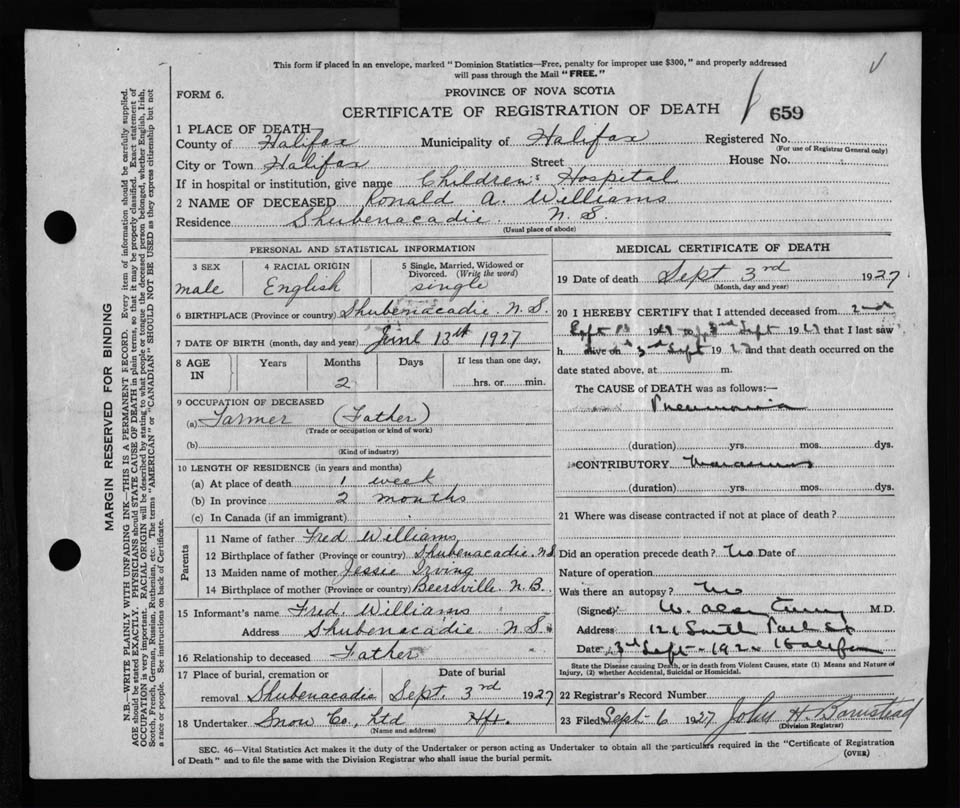 This form if placed in an envelope, marked "Dominion Statistics—Free, penalty for improper use $300," and properly addressed
will pass through the Mail "FREE."
FORM 6.
PROVINCE OF NOVA SCOTIA
CERTIFICATE OF REGISTRATION OF DEATH
659
1 PLACE OF DEATH
County of Halifax Municipality of Halifax Registered No.
(For use of Registrar General only)
City or Town Halifax Street House No.
If in hospital or institution, give name Children's Hospital
2 NAME OF DECEASED Ronald A. Williams
Residence Shubenacadie N. S.
(Usual place of abode)
PERSONAL AND STATISTICAL INFORMATION
3 SEX 4 RACIAL ORIGIN 5 Single, Married, Widowed or
Divorced. (Write the word)
male English single
6 BIRTHPLACE (Province or country) Shubenacadie N. S.
7 DATE OF BIRTH (month, day and year) June 13th 1927
8 AGE IN Years Months Days If less than one day,
2 hrs. or min.
9 OCCUPATION OF DECEASED
(a) Farmer (Father)
(Trade or occupation or kind of work)
(b)
(Kind of industry)
10 LENGTH OF RESIDENCE (in years and months)
(a) At place of death 1 week
(b) In province 2 months
(c) In Canada (if an immigrant)
Parents
11 Name of father Fred Williams
12 Birthplace of father (Province or country) Shubenacadie N.S
13 Maiden name of mother Jessie Irving
14 Birthplace of mother (Province or country) Beersville N.B.
15 Informant's name Fred Williams
Address Shubenacadie N. S.
16 Relationship to deceased Father
17 Place of burial, cremation or Date of burial
removal Shubenacadie Sept. 3rd 1927
18 Undertaker Snow Co., Ltd Hfx.
(Name and address)
MEDICAL CERTIFICATE OF DEATH
19 Date of death Sept 3rd 1927
(Month, day and year)
20 I HEREBY CERTIFY that I attended deceased from 2nd
Sept 1927 to 3rd Sept 1927 that I last saw
h alive on 3rd Sept 1927 and that death occurred on the
date stated above, at m.
The CAUSE of DEATH was as follows:—
Pneumonia
(duration) yrs. mos. dys.
CONTRIBUTORY Marasmus
(duration) yrs. mos. dys.
21 Where was disease contracted if not at place of death?
Did an operation precede death? No Date of
Nature of operation
Was there an autopsy? No
(Signed) W. Alan Curry M.D.
Address 121 South Park St
Date 3rd Sept 192 Halifax
State the Disease causing Death, or in death from Violent Causes, state (1) Means and Nature of
Injury, (2) whether Accidental, Suicidal or Homicidal.
22 Registrar's Record Number
23 Filed Sept 6 1927 John H. Barnstead
(Division Registrar)
SEC. 46—Vital Statistics Act makes it the duty of the Undertaker or person acting as Undertaker to obtain all the particulars required in the "Certificate of Registration
of Death" and to file the same with the Division Registrar who shall issue the burial permit.
(OVER)
MARGIN RESERVED FOR BINDING
N.B.—WRITE PLAINLY WITH UNFADING INK—THIS IS A PERMANENT RECORD. Every item of information should be carefully supplied.
AGE should be stated EXACTLY. PHYSICIANS should STATE CAUSE OF DEATH in plain terms, so that it may be properly classified. Exact statement of
OCCUPATION is very important. RACIAL ORIGIN will be described by stating to what people or tongue the deceased person belonged, whether English, Irish,
Scotch, French, German, Russian, Ruthenian, etc. The terms "AMERICAN" or "CANADIAN" SHOULD NOT BE USED as they express citizenship but not
a race or people. See instructions on back of Certificate.